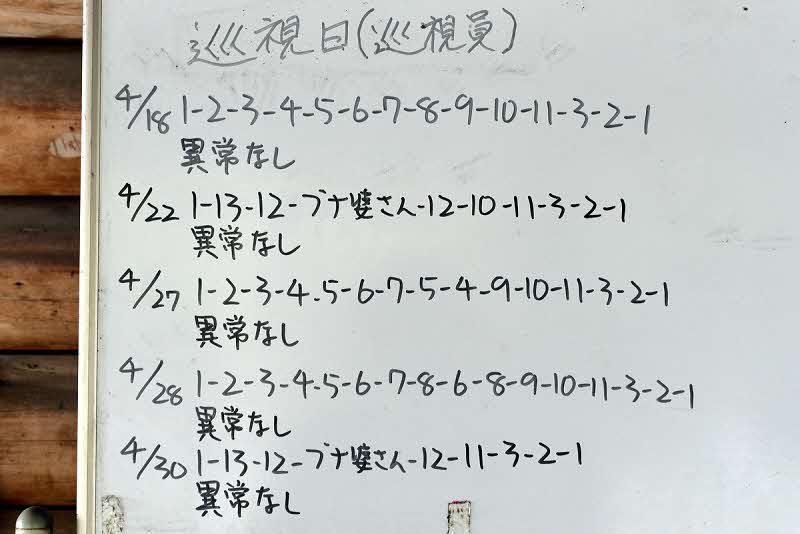 巡視日(巡視員)
4/18 1-2-3-4-5-6-7-8-9-10-11-3-2-1
異常なし
4/22 1-13-12-ブナ婆さん-12-10-11-3-2-1
異常なし
4/27 1-2-3-4-5-6-7-5-4-9-10-11-3-2-1
異常なし
4/28 1-2-3-4-5-6-7-8-6-8-9-10-11-3-2-1
異常なし
4/30 1-13-12-ブナ婆さん-12-11-3-2-1
異常なし